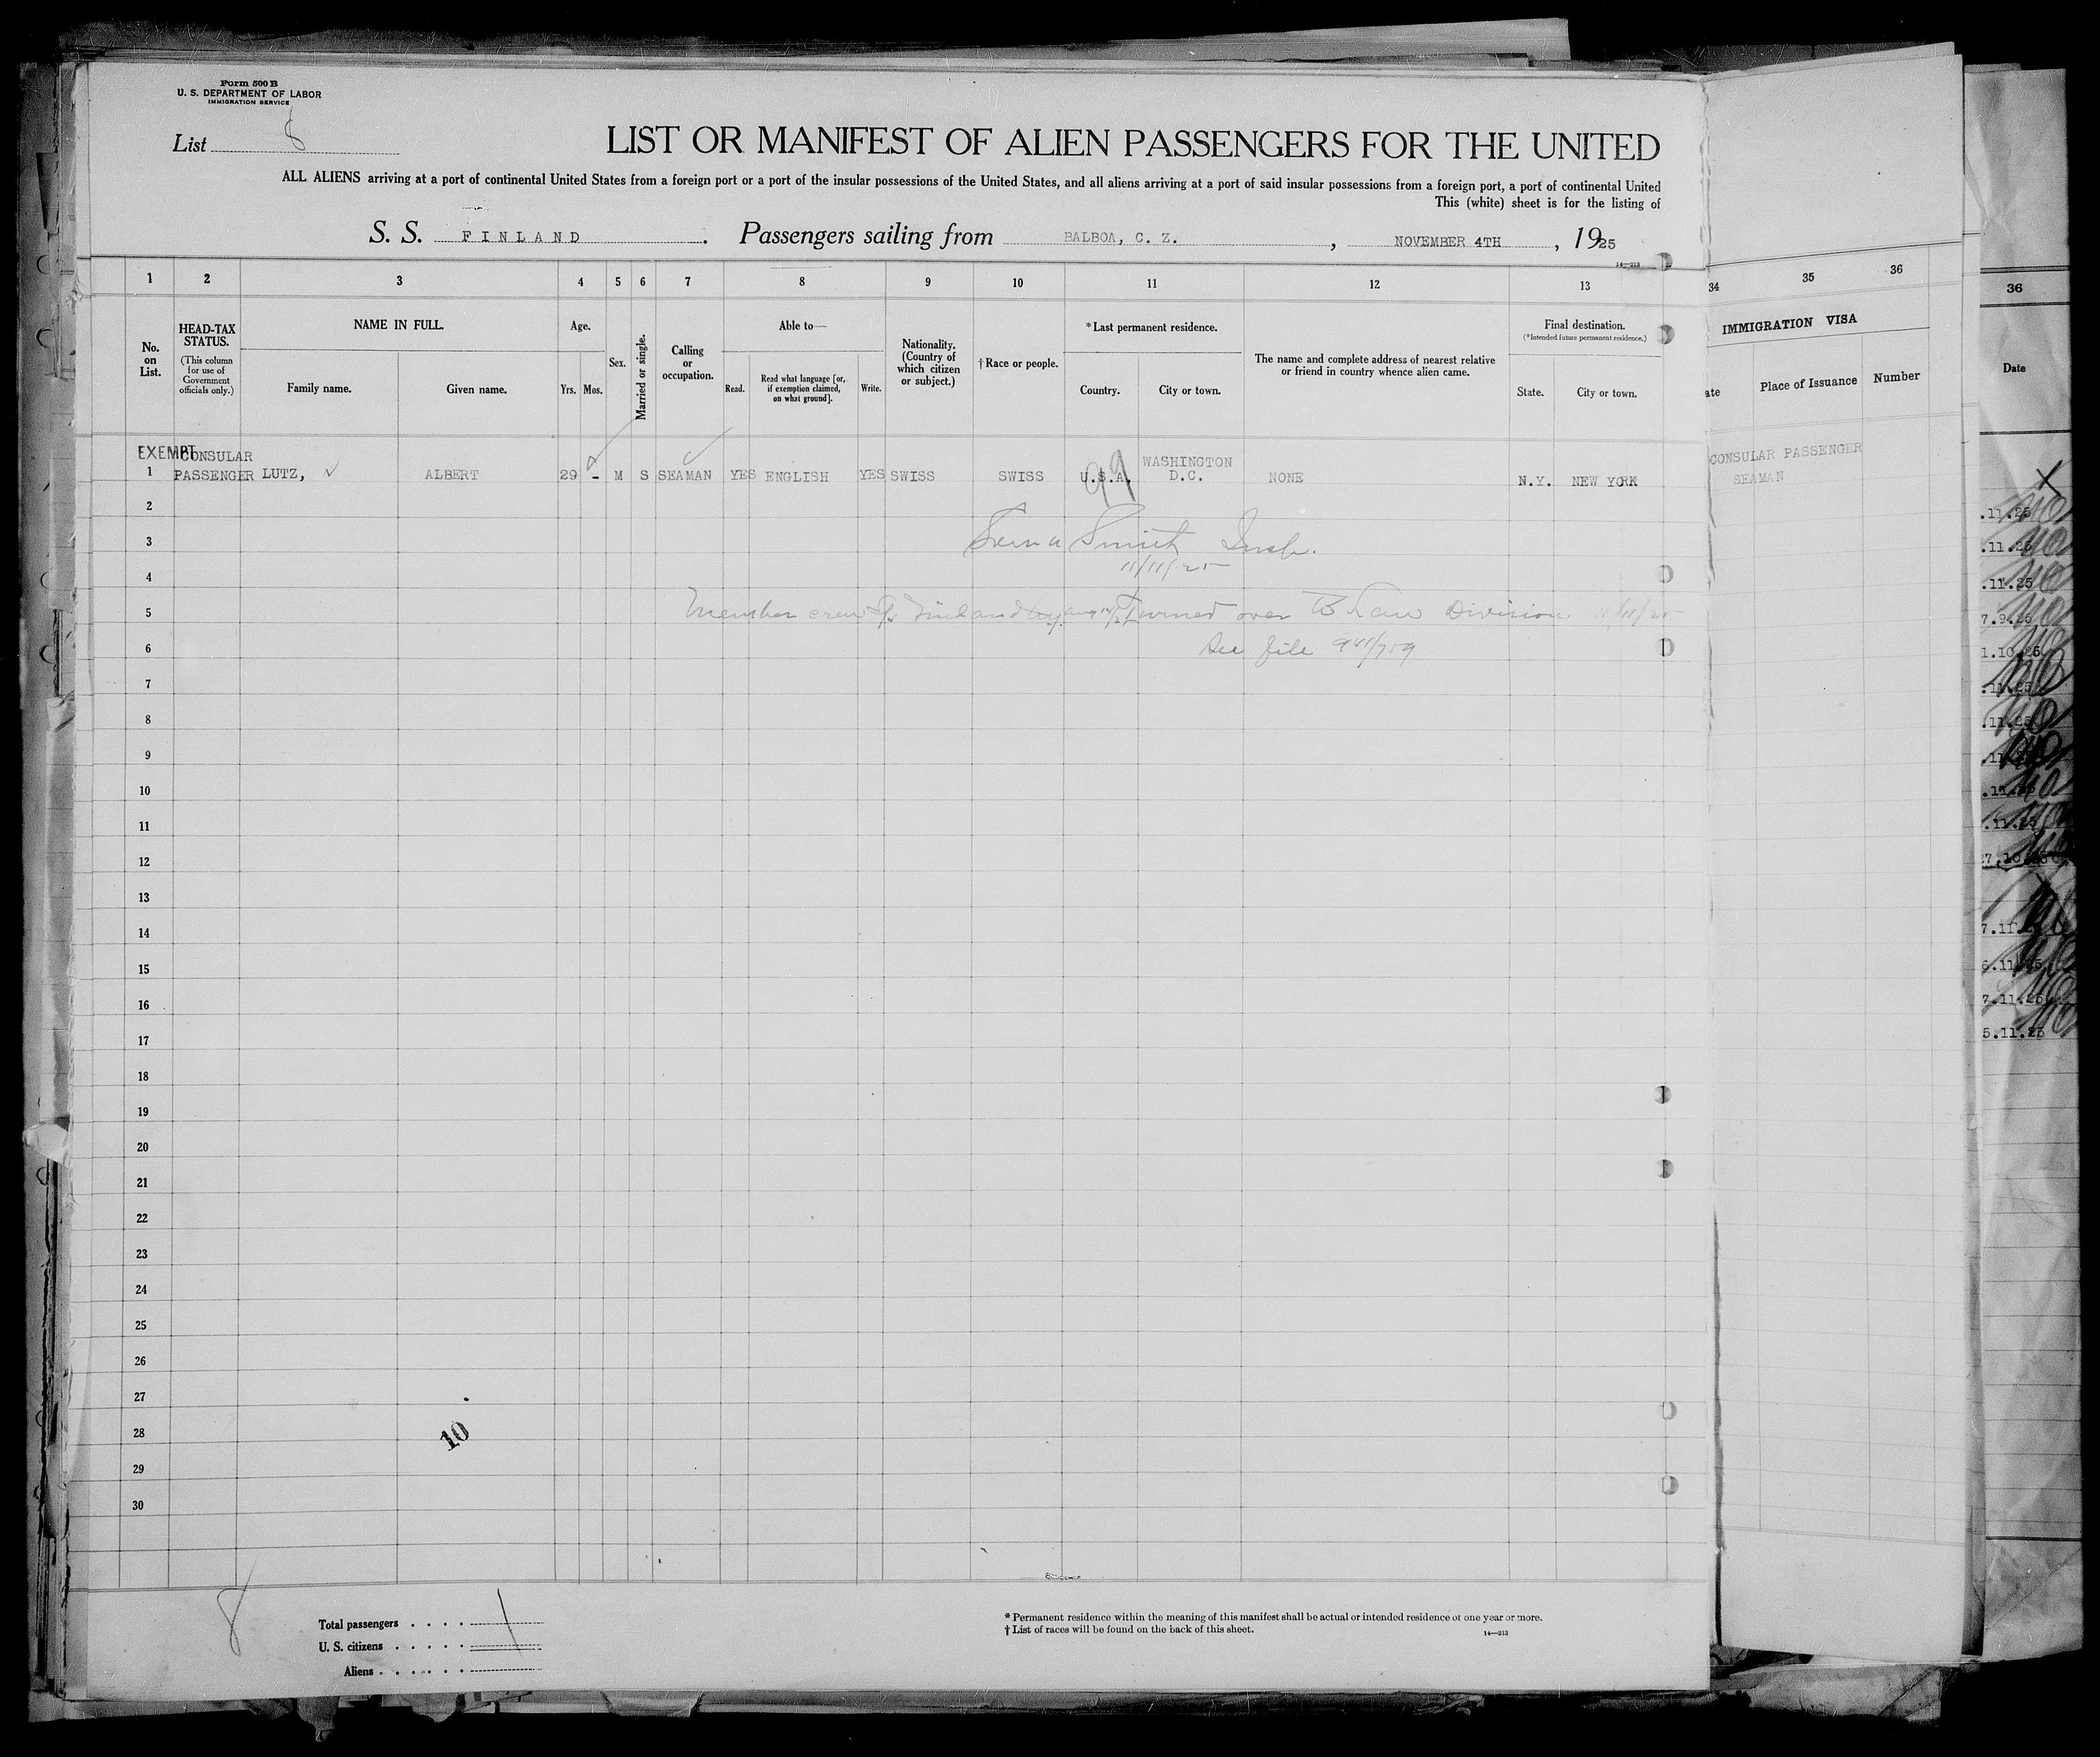 Form 500 B
U. S. DEPARTMENT OF LABOR
IMMIGRATION SERVICE
List 8
LIST OR MANIFEST OF ALIEN PASSENGERS FOR THE UNITED
ALL ALIENS arriving at a port of continental United States from a foreign port or a port of the insular possessions of the United States, and all aliens arriving at a port of said insular possessions from a foreign port, a port of continental United
This (white) sheet is for the listing of
S. S. FINLAND. Passengers sailing from BALBOA, C. Z., NOVEMBER 4TH, 1925
14—213
1 2 3 4 5 6 7 8 9 10 11 12 13 34 35 36
36
No. on List.
HEAD-TAX STATUS.
(This column for use of Government officials only.)
NAME IN FULL.
Family name.
Given name.
Age.
Yrs. Mos.
Sex.
Married or single.
Calling or occupation.
Able to—
Read.
Read what language [or, if exemption claimed, on what ground].
Write.
Nationality. (Country of which citizen or subject.)
† Race or people.
*Last permanent residence.
Country.
City or town.
The name and complete address of nearest relative or friend in country whence alien came.
Final destination.
(*Intended future permanent residence.)
State.
City or town.
IMMIGRATION VISA
ate
Place of Issuance
Number
Date
EXEMPT CONSULAR WASHINGTON CONSULAR PASSENGER
1 PASSENGER LUTZ, ALBERT 29 - M S SEAMAN YES ENGLISH YES SWISS SWISS U.S.A. D.C. NONE N.Y. NEW YORK SEAMAN
99
2
3
Smith
11/11/25
4
5 Member crew Finland turned over to Law Division 11/11/25
6 See file
7
8
9
10
11
12
13
14
15
16
17
18
19
20
21
22
23
24
25
26
27
28
29
30
10
.11.25
.11.25
.11.25
7.9.25
1.10.25
.11.25
.11.25
7.11.25
5.11.25
8
Total passengers . . . . 1
U. S. citizens . . . . .
Aliens . . . . . .
* Permanent residence within the meaning of this manifest shall be actual or intended residence of one year or more.
† List of races will be found on the back of this sheet.
14—213